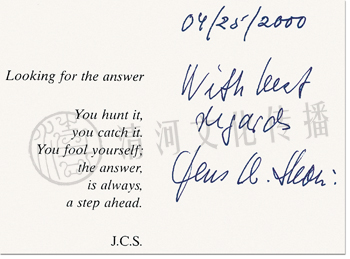 04/25/2000
Looking for the answer
With best
regards
You hunt it,
you catch it.
You fool yourself;
the answer,
is always,
a step ahead.
J.C.S.
河文化传播